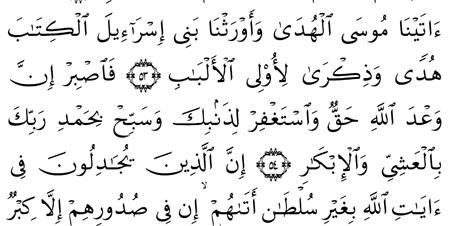 ءَاتَيْنَا مُوسَى ٱلْهُدَىٰ وَأَوْرَثْنَا بَنِىٓ إِسْرَٰٓءِيلَ ٱلْكِتَٰبَ
هُدًى وَذِكْرَىٰ لِأُو۟لِى ٱلْأَلْبَٰبِ ٥٣ فَٱصْبِرْ إِنَّ
وَعْدَ ٱللَّهِ حَقٌّ وَٱسْتَغْفِرْ لِذَنۢبِكَ وَسَبِّحْ بِحَمْدِ رَبِّكَ
بِٱلْعَشِىِّ وَٱلْإِبْكَٰرِ ٥٤ إِنَّ ٱلَّذِينَ يُجَٰدِلُونَ فِىٓ
ءَايَٰتِ ٱللَّهِ بِغَيْرِ سُلْطَٰنٍ أَتَىٰهُمْ ۙ إِن فِى صُدُورِهِمْ إِلَّا كِبْرٌ